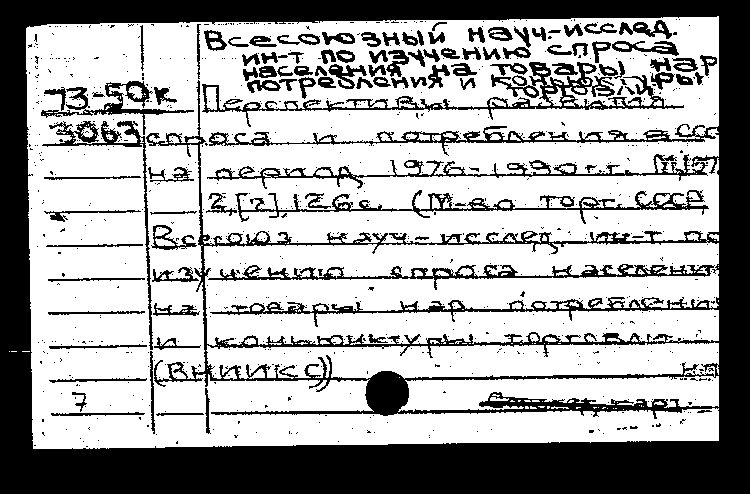 Всесоюзный науч-исслед.
ин-т по изучению спроса
населения на товары нар
потребления и конъюктуры
торговли
73-50к Перспективы развития
3063 спроса и потребления в СССР
на период 1976-1990 г.г. М, 197
2, [?], 126 с. (М-во торг. СССР
Всесоюз науч-исслед. ин-т по
изучению спроса населени
на товары нар. потреблени
и конъюнктуры торговли.
(ВНИИКС))
7 карт.